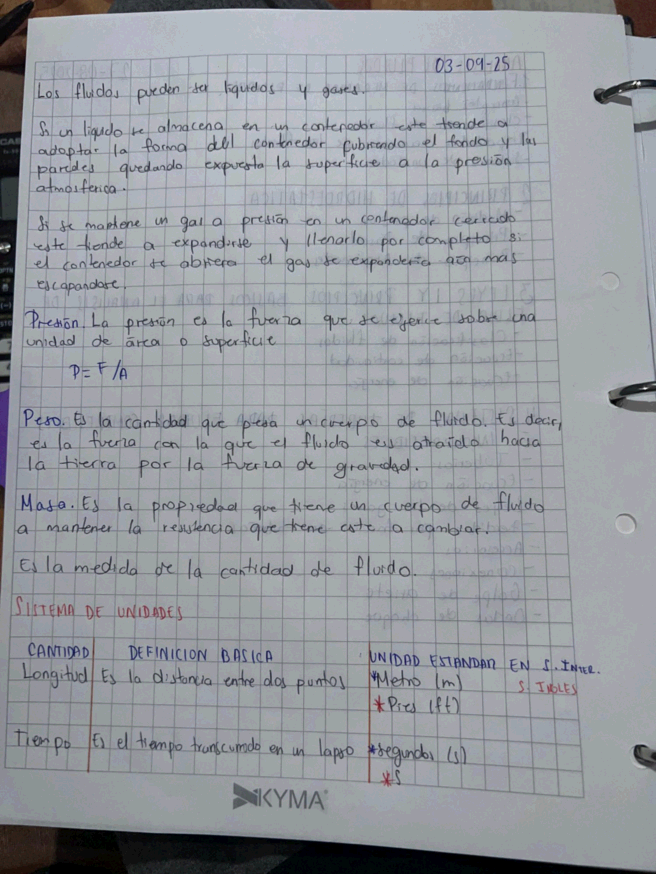 03-09-25
Los fluidos pueden ser líquidos y gases.
Si un líquido se almacena en un contenedor este tiende a
adoptar la forma del contenedor cubriendo el fondo y las
paredes quedando expuesta la superficie a la presión
atmosférica.
Si se mantiene un gas a presión en un contenedor cerrado
este tiende a expandirse y llenarlo por completo si
el contenedor se abriera el gas se expandería aún mas
escapandose.
Presión. La presión es la fuerza que se ejerce sobre una
unidad de área o superficie
P= F/A
Peso. Es la cantidad que pesa un cuerpo de fluido. Es decir,
es la fuerza con la que el fluido es atraído hacia
la tierra por la fuerza de gravedad.
Masa. Es la propiedad que tiene un cuerpo de fluido
a mantener la resistencia que tiene este a cambiar.
Es la medida de la cantidad de fluido.
SISTEMA DE UNIDADES
CANTIDAD DEFINICION BASICA UNIDAD ESTANDAR EN S. INTER.
Longitud Es la distancia entre dos puntos *Metro (m) S. INGLES
*Pies (ft)
Tiempo Es el tiempo transcurrido en un lapso *segundos (s)
*s
KYMA